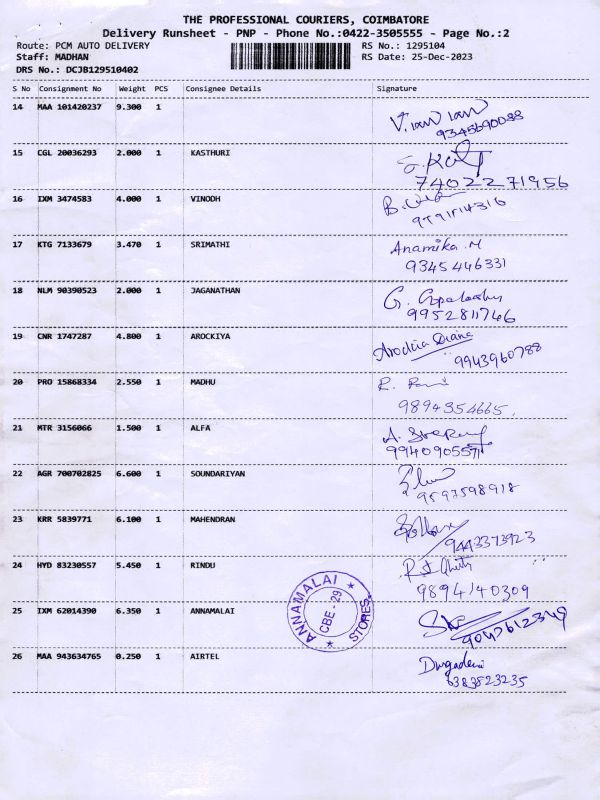 THE PROFESSIONAL COURIERS, COIMBATORE
Delivery Runsheet - PNP - Phone No.:0422-3505555 - Page No.:2
Route: PCM AUTO DELIVERY RS No.: 1295104
Staff: MADHAN RS Date: 25-Dec-2023
DRS No.: DCJB129510402
S No Consignment No Weight PCS Consignee Details Signature
14 MAA 101420237 9.300 1
9345690088
15 CGL 20036293 2.000 1 KASTHURI
74022 71956
16 IXM 3474583 4.000 1 VINODH
17 KTG 7133679 3.470 1 SRIMATHI Anamika.M
9345446331
18 NLM 90390523 2.000 1 JAGANATHAN
9952811746
19 CNR 1747287 4.800 1 AROCKIYA
9943960788
20 PRO 15868334 2.550 1 MADHU
9894354665.
21 MTR 3156066 1.500 1 ALFA
22 AGR 700702825 6.600 1 SOUNDARIYAN
9597598918
23 KRR 5839771 6.100 1 MAHENDRAN
9443373923
24 HYD 83230557 5.450 1 RINDU
9894140309
25 IXM 62014390 6.350 1 ANNAMALAI
ANNAMALAI
CBE - 29
STORES.
26 MAA 943634765 0.250 1 AIRTEL Durgadevi
6383823235